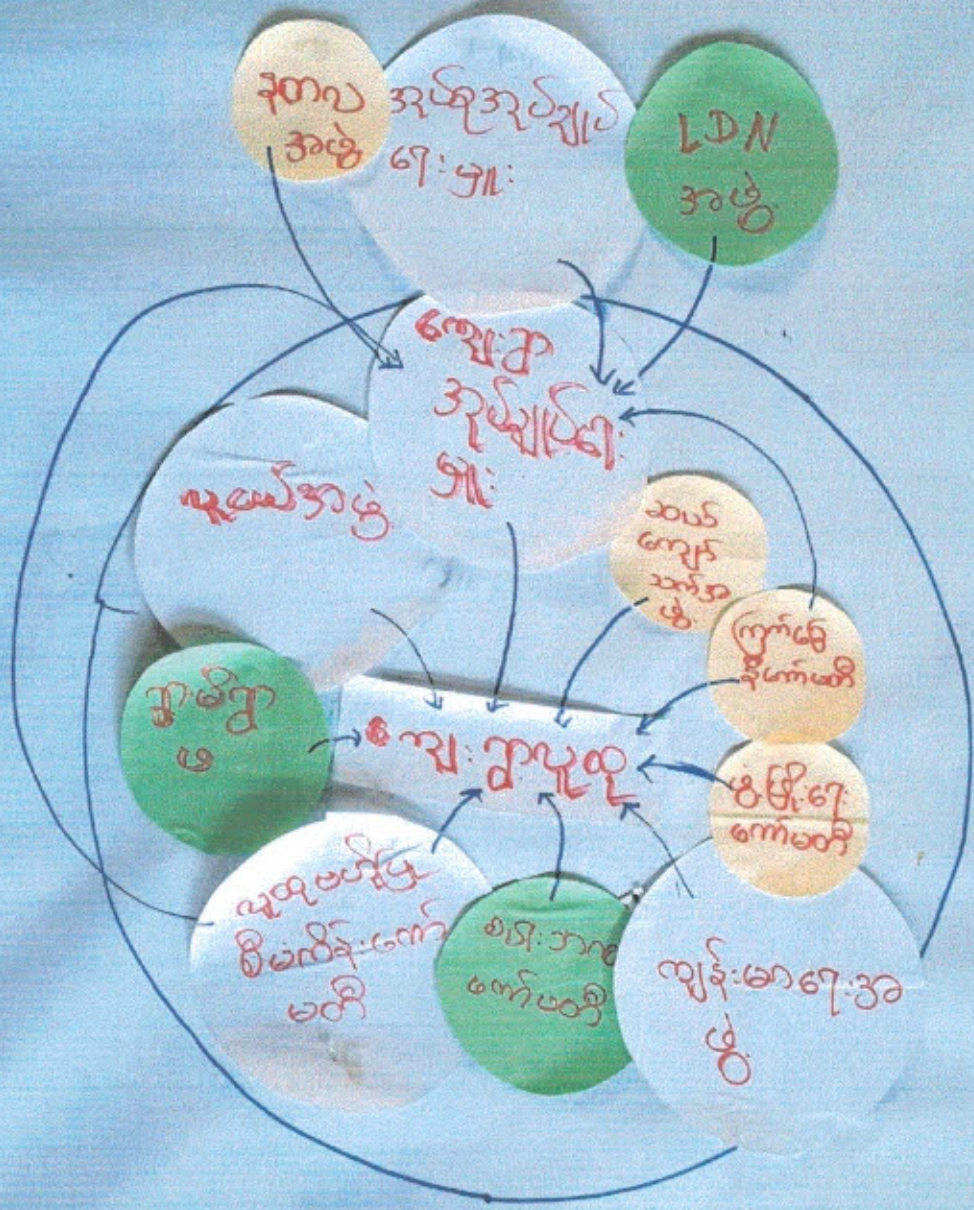 နတလ
အဖွဲ့
အုပ်စုအုပ်ချုပ်
ရေးမှူး
LDN
အဖွဲ့
ကျေးရွာ
အုပ်ချုပ်ရေး
မှူး
လူငယ်အဖွဲ့
ဆယ်
ကျော်
သက်အ
ဖွဲ့
ကြက်ခြေ
နီကော်မတီ
ရွာမိရွာ
ဖ
ကျေးရွာလူထု
ဖွံ့ဖြိုးရေး
ကော်မတီ
လူထုဗဟိုပြု
စီမံကိန်းကော်
မတီ
ကော်မတီ
ကျန်းမာရေးအ
ဖွဲ့